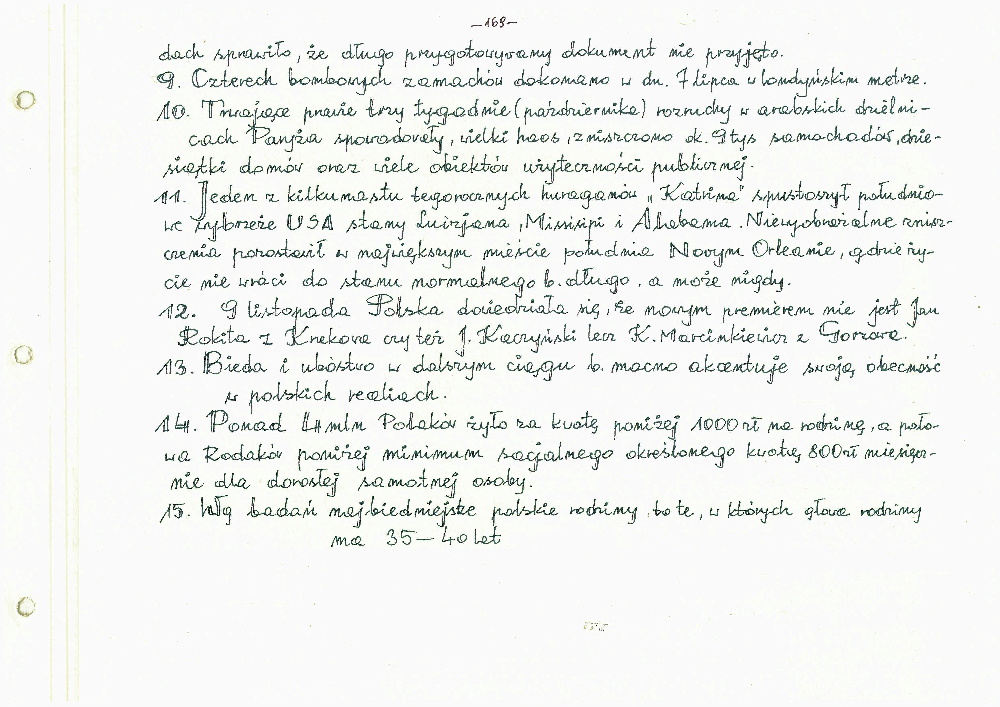 —169—
dach sprawiło, że długo przygotowywany dokument nie przyjęto.
9. Czterech bombowych zamachów dokonano w dn. 7 lipca w londyńskim metrze.
10. Trwające prawie trzy tygodnie (października) rozruchy w arabskich dzielni-
cach Paryża spowodowały, wielki haos, zniszczono ok. 9tys samochodów, dzie-
siątki domów oraz wiele obiektów użyteczności publicznej.
11. Jeden z kilkunastu tegorocznych huraganów „Katrina" spustoszył południo-
we wybrzeże USA stany Luizjana, Missisipi i Alabama. Niewyobrażalne znisz-
czenia pozostawił w największym mieście południa Nowym Orleanie, gdzie ży-
cie nie wróci do stanu normalnego b. długo, a może nigdy.
12. 9 listopada Polska dowiedziała się, że nowym premierem nie jest Jan
Rokita z Krakowa czy też J. Kaczyński lecz K. Marcinkiewicz z Gorzowa.
13. Bieda i ubóstwo w dalszym ciągu b. mocno akcentuje swoją obecność
w polskich realiach.
14. Ponad 4 mln Polaków żyło za kwotę poniżej 1000 zł na rodzinę, a poło-
wa Rodaków poniżej minimum socjalnego określonego kwotą 800 zł miesięcz-
nie dla dorosłej samotnej osoby.
15. Wg badań najbiedniejsze polskie rodziny to te, w których głowa rodziny
ma 35—40 lat